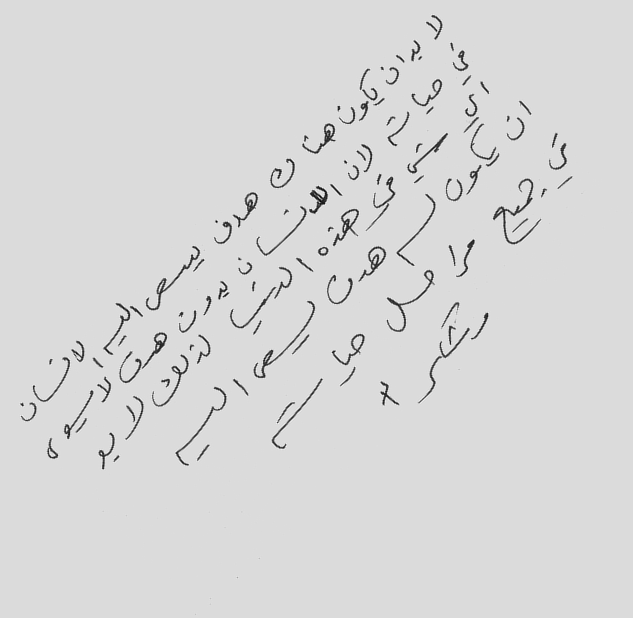 لا بد ان يكون هناك هدف يسعى اليه الانسان
في حياته لان الانسان بدون هدف لا يسوه
اي شئ في هذه الدنيا لذلك لا بد
ان يكون له هدف يسعى اليه
في جميع مراحل حياته
وشكرا